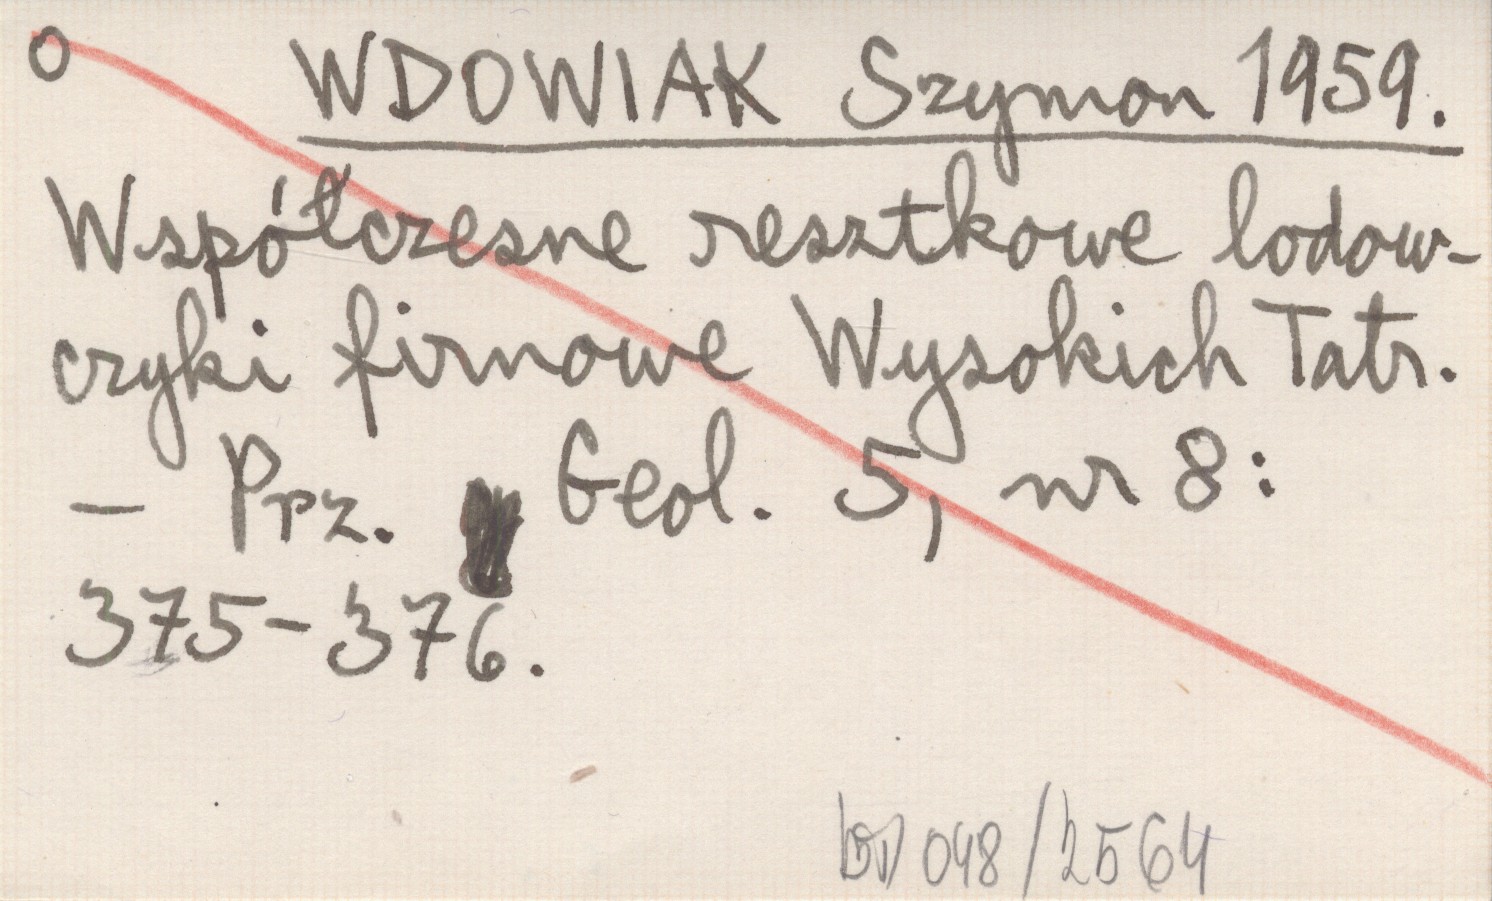 O WDOWIAK Szymon 1959.
Współczesne resztkowe lodow-
czyki firnowe Wysokich Tatr.
– Prz. Geol. 5, nr 8:
375-376.
048/2564